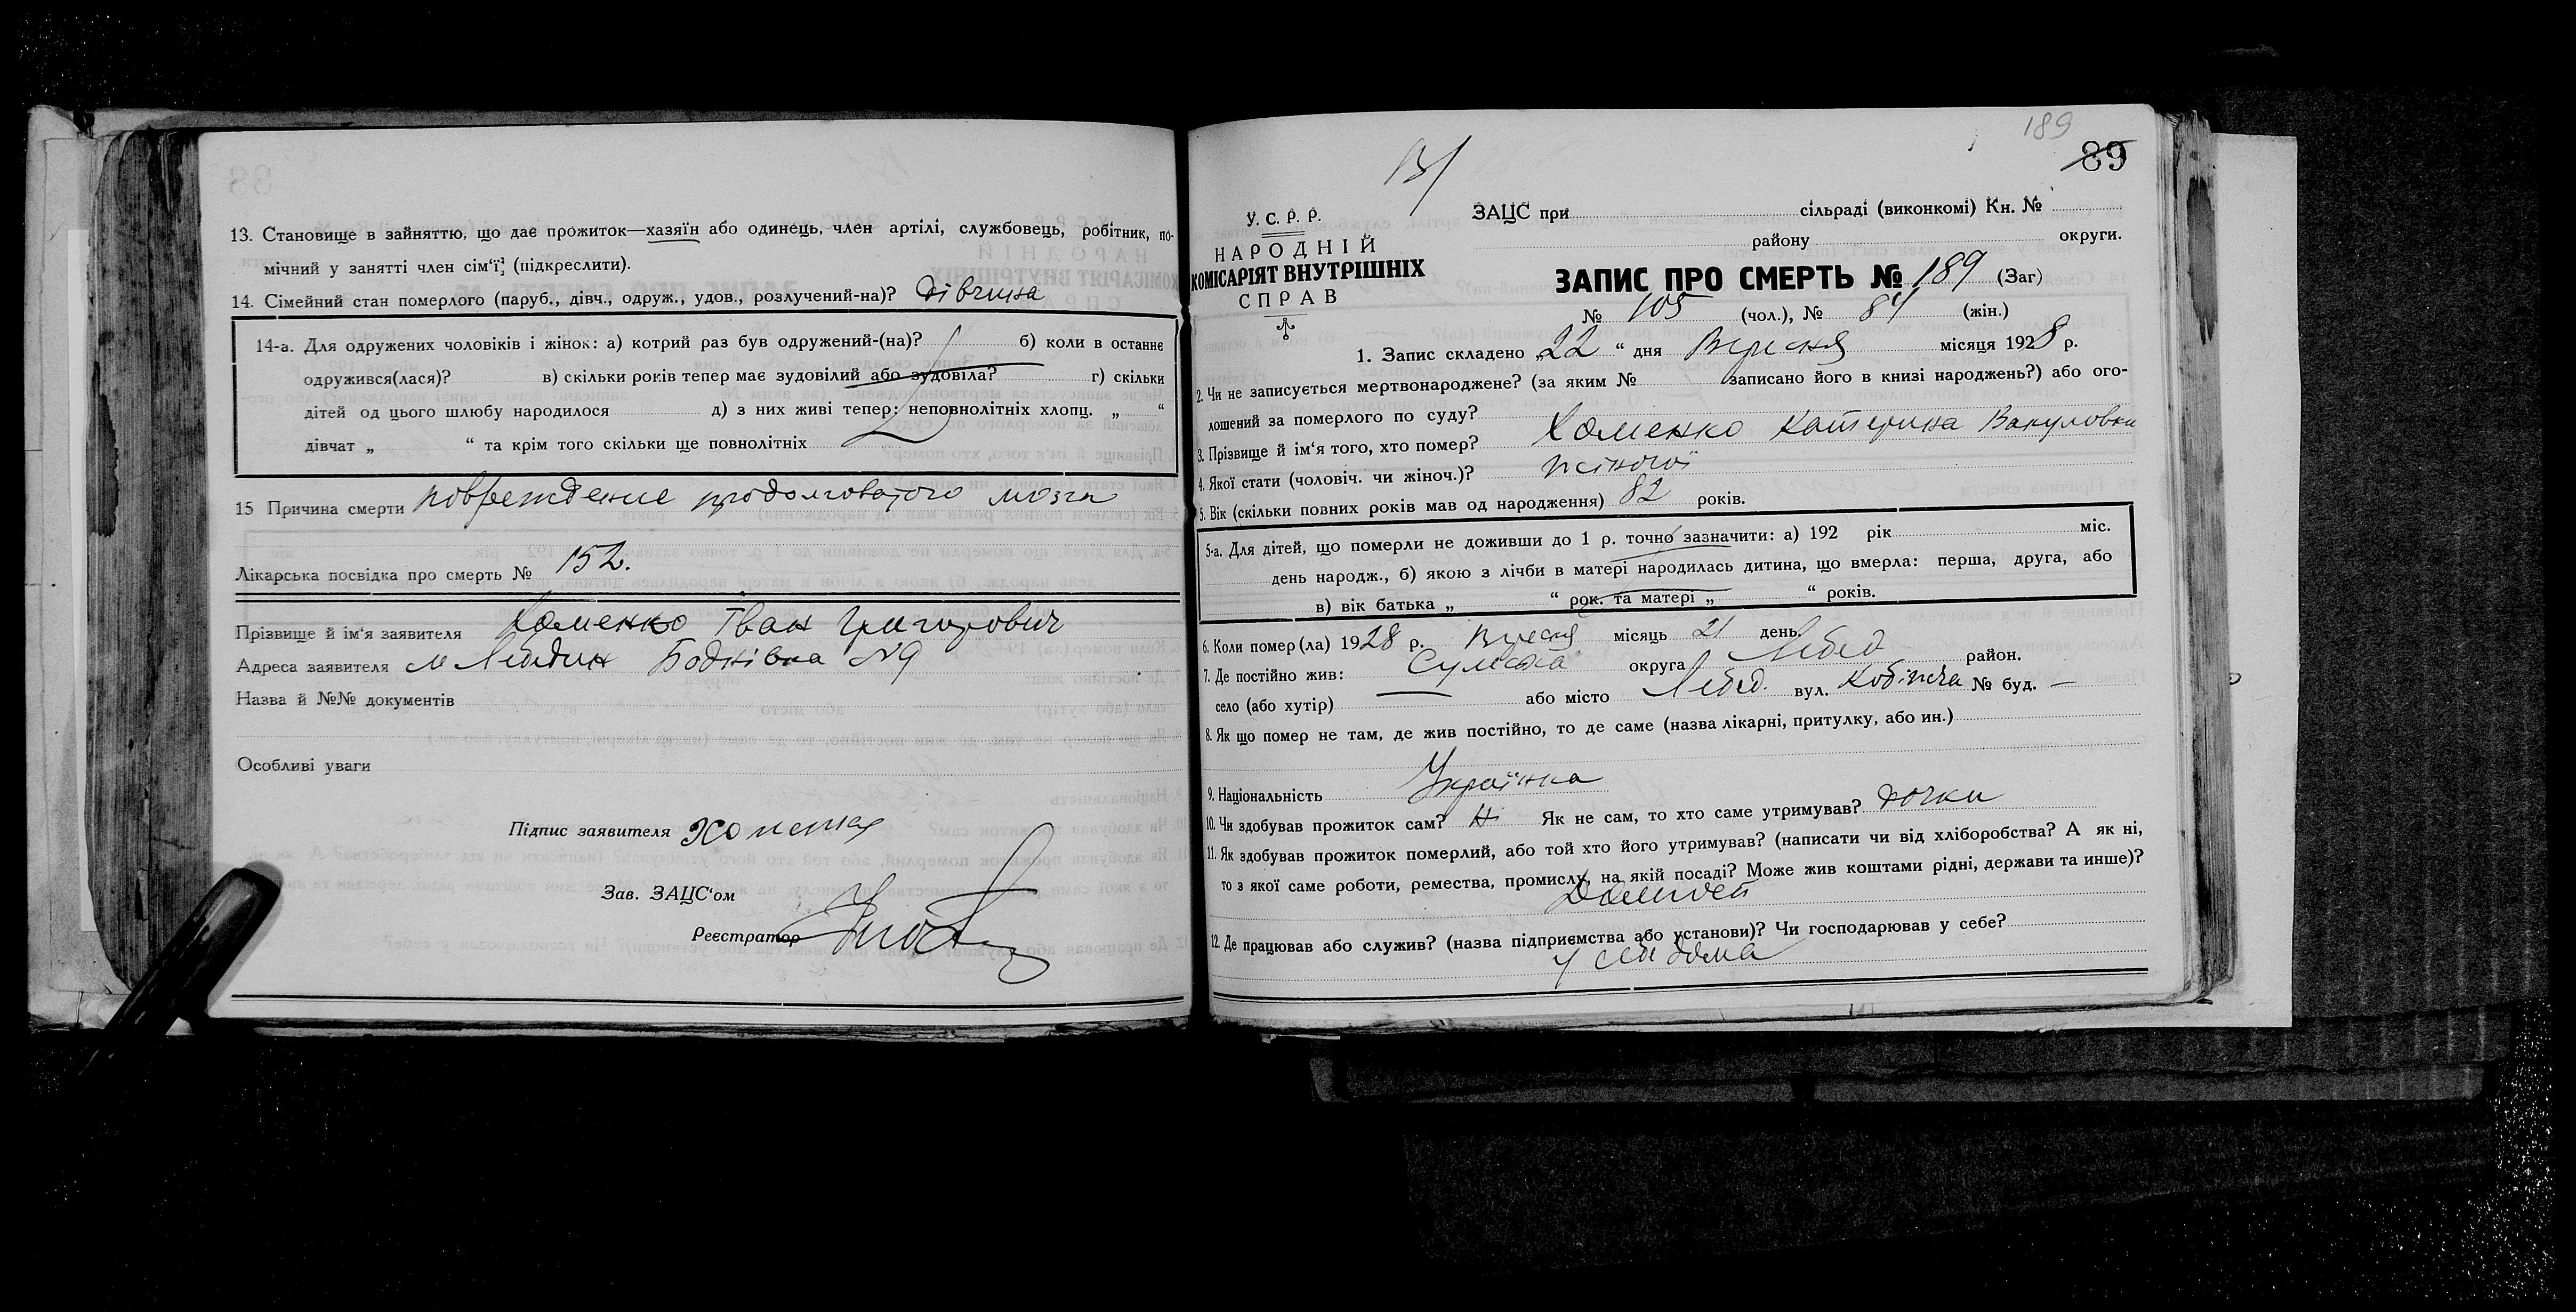 13. Становище в зайняттю, що дає прожиток—хазяїн або одинець, член артілі, службовець, робітник, по-
мічний у занятті член сім'ї (підкреслити).
14. Сімейний стан померлого (паруб., дівч., одруж., удов., розлучений-на)? дівчина
14-а. Для одружених чоловіків і жінок: а) котрий раз був одружений-(на)? б) коли в останнє
одружився(лася)? в) скільки років тепер має зудовілий або зудовіла? г) скільки
дітей од цього шлюбу народилося д) з них живі тепер: неповнолітніх хлопц. „ “
дівчат „ “ та крім того скільки ще повнолітніх
15 Причина смерти повреждение продолговатого мозга
Лікарська посвідка про смерть № 152.
Прізвище й ім'я заявителя Хоменко Іван Григорович
Адреса заявителя м Лебедин N9
Назва й №№ документів
Особливі уваги
Підпис заявителя Хоменко
Зав. ЗАЦС'ом
Реєстратор
189
89
У. С. Р. Р.
НАРОДНІЙ
КОМІСАРІЯТ ВНУТРІШНІХ
СПРАВ
ЗАЦС при сільраді (виконкомі) Кн. №
району округи.
ЗАПИС ПРО СМЕРТЬ № 189 (Заг)
№ 105 (чол.), № 84 (жін.)
1. Запис складено „22“ дня Вересня місяця 1928 р.
2. Чи не записується мертвонароджене? (за яким № записано його в книзі народжень?) або ого-
лошений за померлого по суду?
3. Прізвище й ім'я того, хто помер? Хоменко Катерина Вакуловна
4. Якої стати (чоловіч. чи жіноч.)? жіночої
5. Вік (скільки повних років мав од народження) 82 років.
5-а. Для дітей, що померли не доживши до 1 р. точно зазначити: а) 192 рік міс.
день народж., б) якою з лічби в матері народилась дитина, що вмерла: перша, друга, або
в) вік батька „ “ рок. та матері „ “ років.
6. Коли помер(ла) 1928 р. Вересня місяць 21 день.
7. Де постійно жив: Сумська округа Лебед район.
село (або хутір) — або місто Лебед. вул. № буд. —
8. Як що помер не там, де жив постійно, то де саме (назва лікарні, притулку, або ин.)
9. Національність Українка
10. Чи здобував прожиток сам? Ні Як не сам, то хто саме утримував? дочки
11. Як здобував прожиток померлий, або той хто його утримував? (написати чи від хліборобства? А як ні,
то з якої саме роботи, ремества, промислу, на якій посаді? Може жив коштами рідні, держави та инше)?
12. Де працював або служив? (назва підприємства або установи)? Чи господарював у себе?
у себе дома